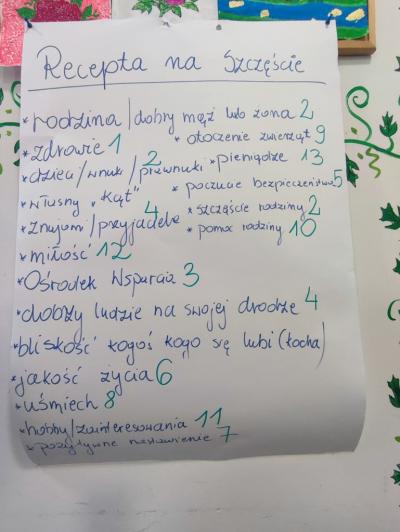 Recepta na Szczęście
*rodzina/dobry mąż lub żona 2
*zdrowie 1
*otoczenie zwierząt 9
*dzieci/wnuki/prawnuki 2
*pieniądze 13
*własny "kąt"
*poczucie bezpieczeństwa 5
*znajomi/przyjaciele 4
*szczęście rodziny 2
*pomoc rodziny 10
*miłość 12
*Ośrodek Wsparcia 3
*dobrzy ludzie na swojej drodze 4
*bliskość kogoś kogo się lubi (kocha)
*jakość życia 6
*uśmiech 8
*hobby/zainteresowania 11
*pozytywne nastawienie 7